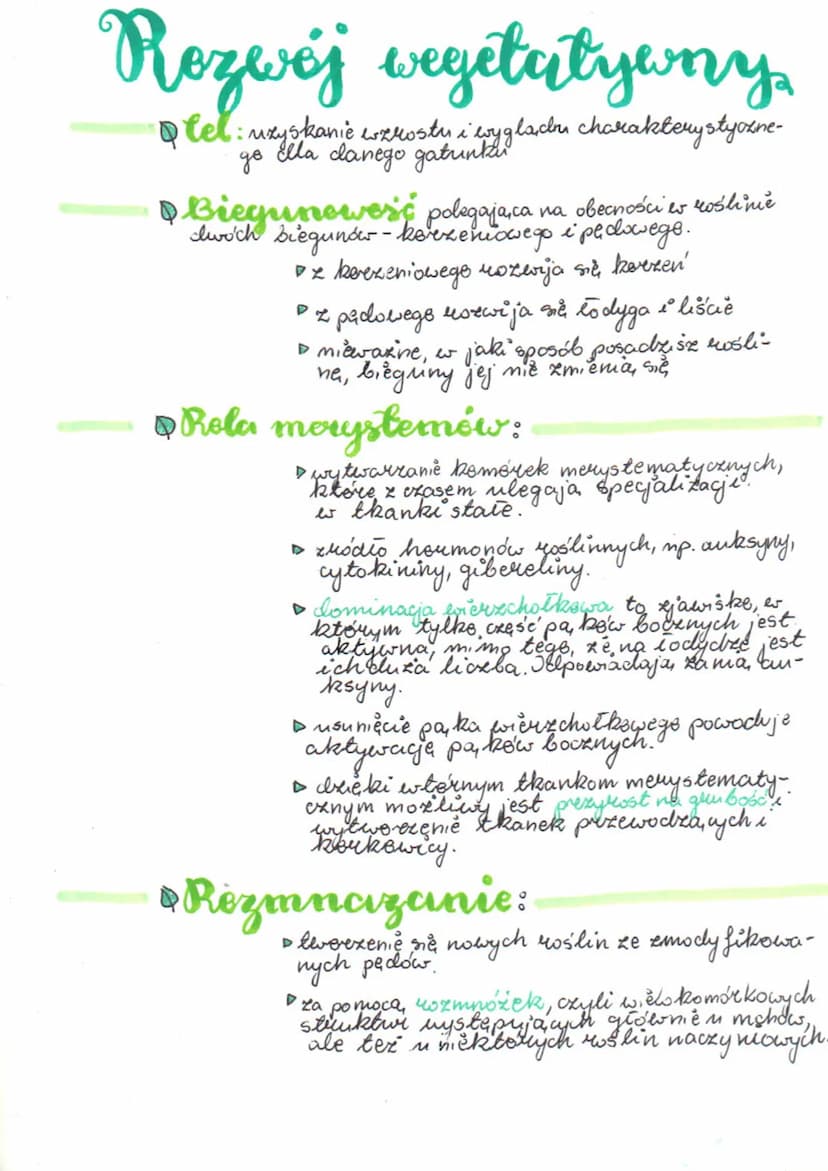 Rozwój wegetatywny
Cel: uzyskanie wzrostu i wyglądu charakterystyczne-
go dla danego gatunku
Biegunowość polegająca na obecności w roślinie
dwóch biegunów - korzeniowego i pędowego.
z korzeniowego rozwija się korzeń
z pędowego rozwija się łodyga i liście
nieważne, w jaki sposób posadzisz rośli-
nę, bieguny jej nie zmienią się
Rola merystemów:
wytwarzanie komórek merystematycznych,
które z czasem ulegają specjalizacji
w tkanki stałe.
źródło hormonów roślinnych, np. auksyny,
cytokininy, gibereliny.
dominacja wierzchołkowa to zjawisko, w
którym tylko część pąków bocznych jest
aktywna, mimo tego, że na łodydze jest
ich duża liczba. Odpowiadają za nią au-
ksyny.
usunięcie pąka wierzchołkowego powoduje
aktywację pąków bocznych.
dzięki wtórnym tkankom merystematy-
cznym możliwy jest przyrost na grubość i
wytworzenie tkanek przewodzących i
korkowicy.
Rozmnażanie:
tworzenie się nowych roślin ze zmodyfikowa-
nych pędów.
za pomocą rozmnóżek, czyli wielokomórkowych
struktur występujących głównie u mchów,
ale też u niektórych roślin naczyniowych.